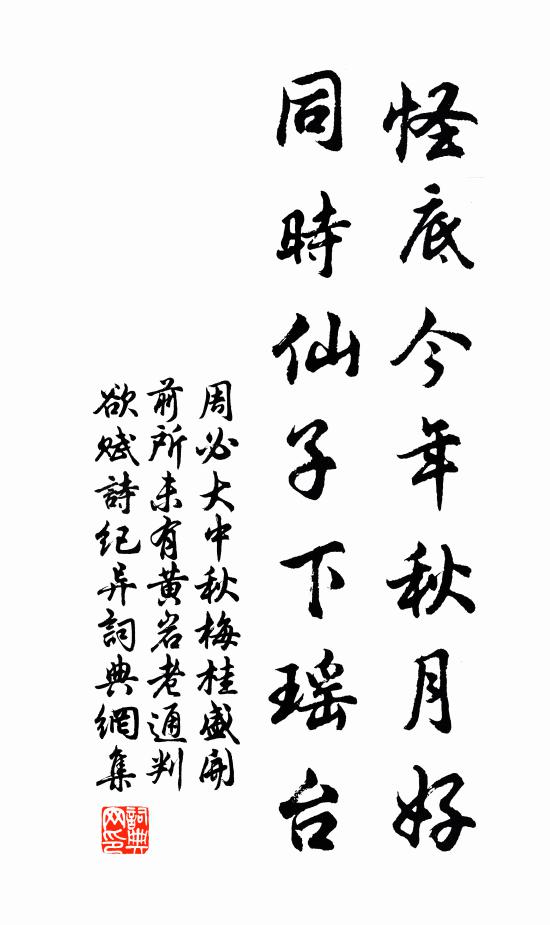 怪底今年秋月好
同時仙子下瑶台
周必大中秋梅桂盛開
前所未有黄岩老通判
欲赋詩纪异詞典網集
詞典网印